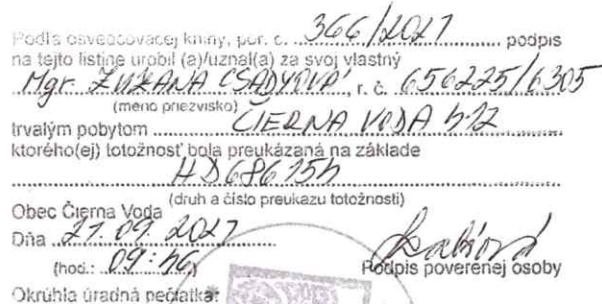 Podľa osvedčovacej knihy, por. č. 366/2021 podpis
na tejto listine urobil (a)/uznal(a) za svoj vlastný
Mgr. ZUZANA CSADYOVÁ, r. č. 656225/6305
(meno priezvisko)
trvalým pobytom ČIERNA VODA 512
ktorého(ej) totožnosť bola preukázaná na základe
HD686
(druh a číslo preukazu totožnosti)
Obec Čierna Voda
Dňa 21.09.2021
(hod.: 09:46)
Podpis poverenej osoby
Okrúhla úradná pečiatka: